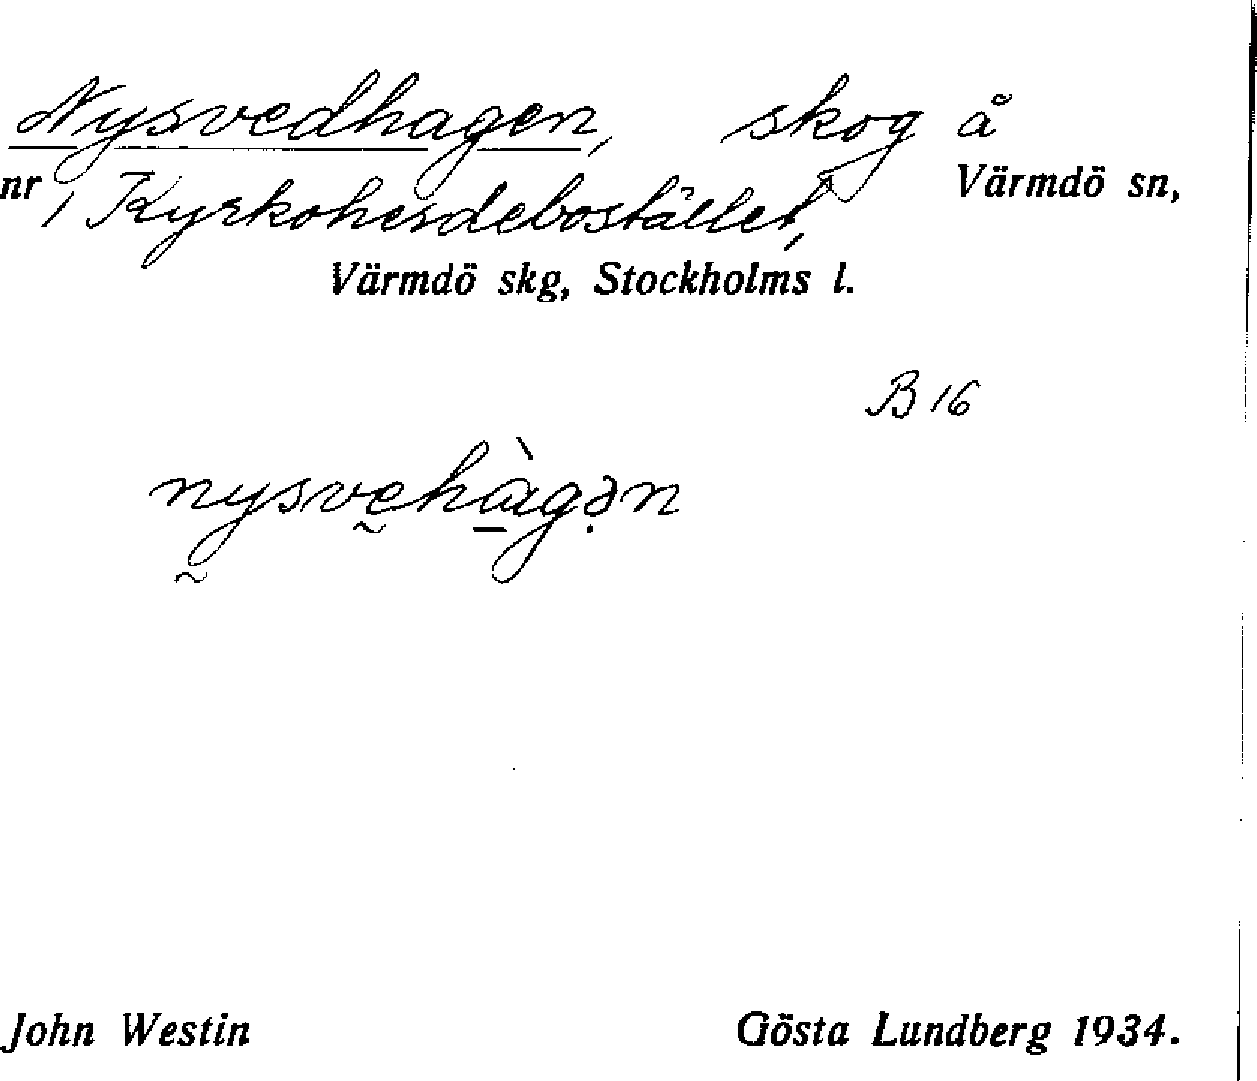 Nysvedhagen, skog å
nr 1, Kyrkoherdebostället, Värmdö sn,
Värmdö skg, Stockholms l.
B 16
nysvehàgən
John Westin Gösta Lundberg 1934.